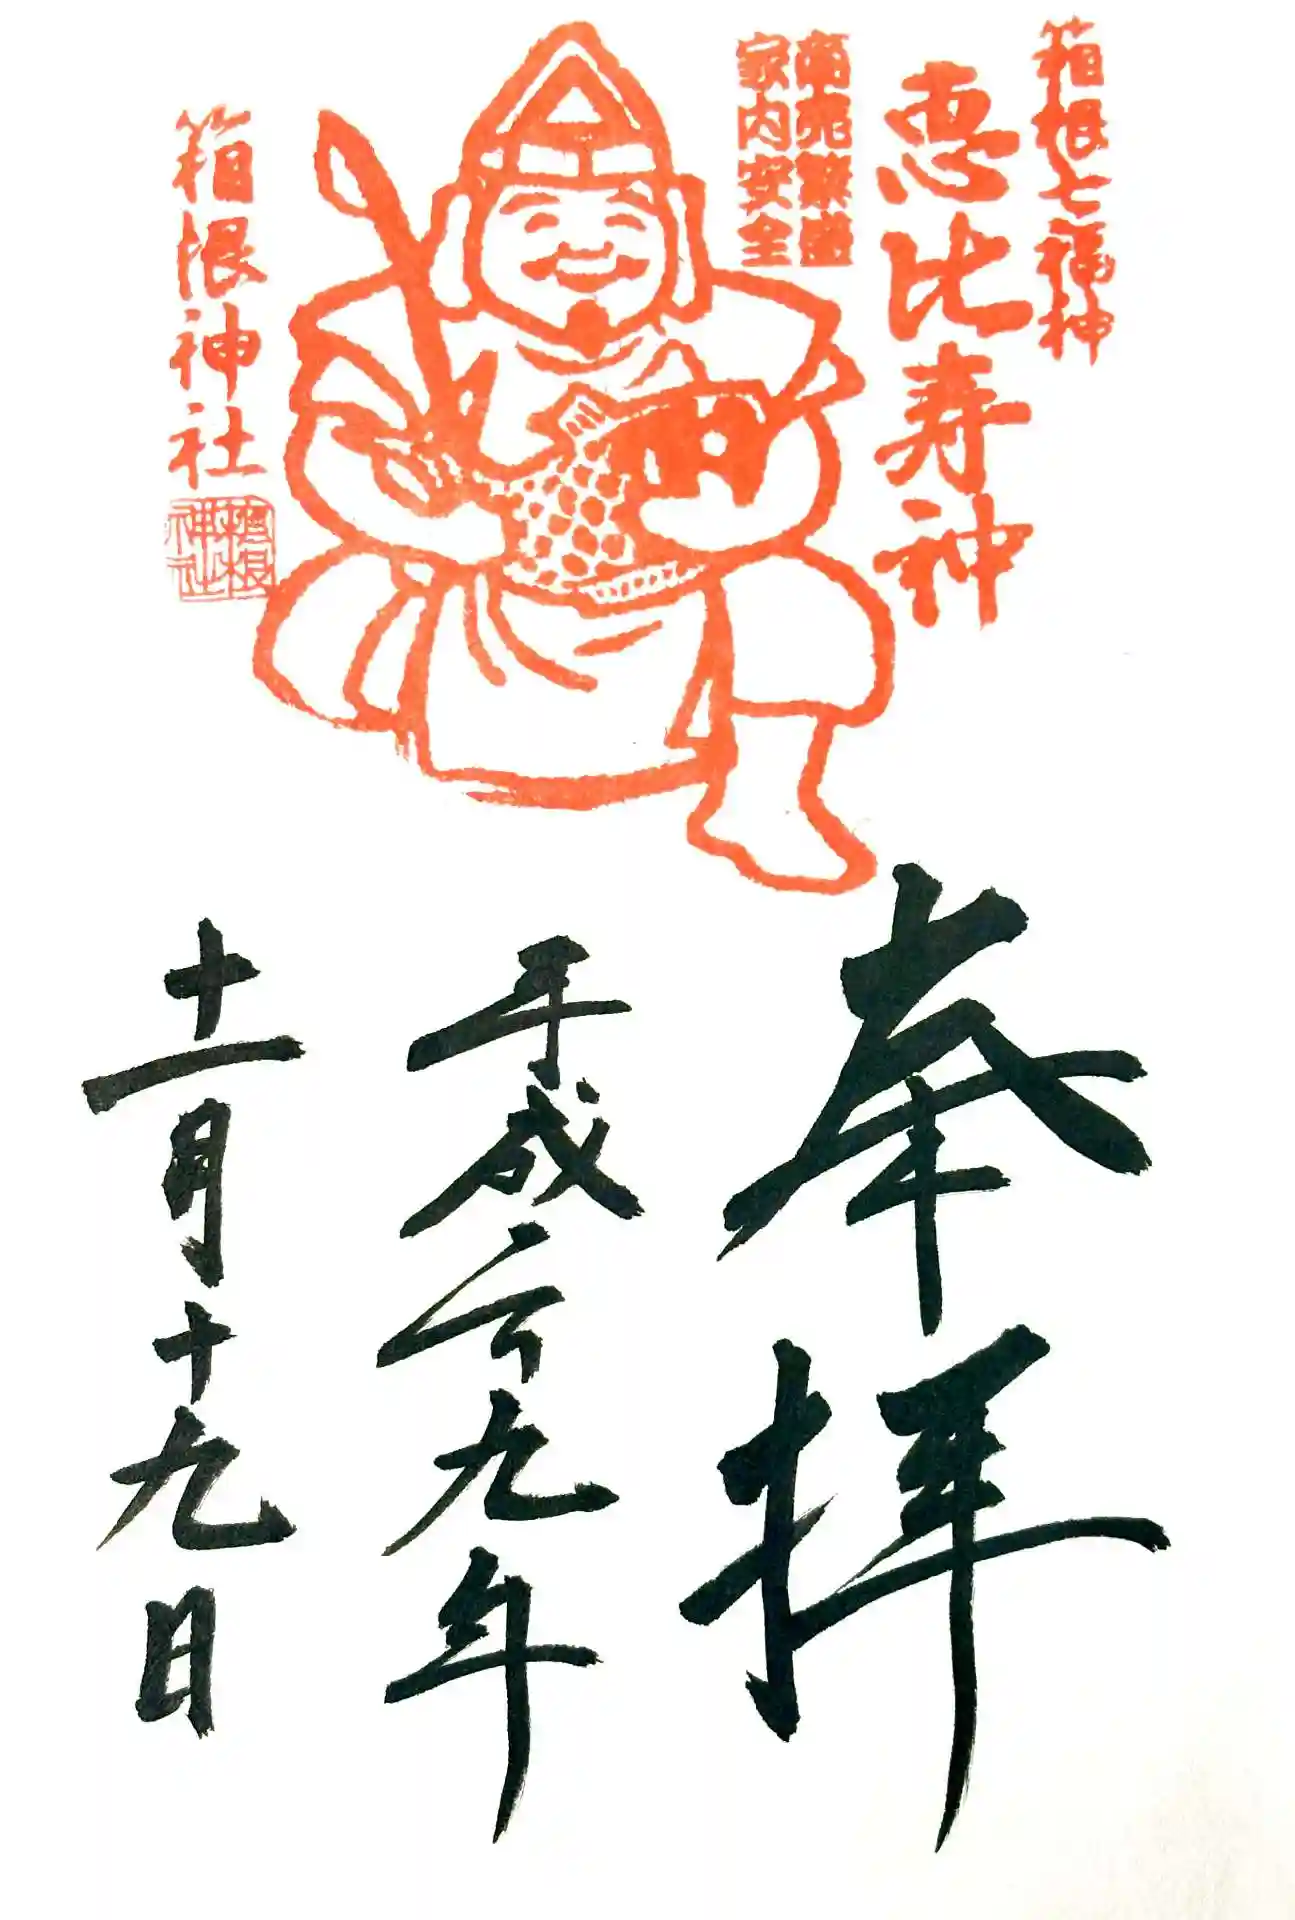 箱根七福神
恵比寿神
商売繁盛
家内安全
箱根神社
箱根神社
奉拝
平成二十九年
十一月十九日